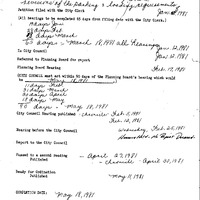 Petition filed with the City Clerk. Jan 12, 1981
(All hearings to be completed 65 days from filing date with the City Clerk.)
19 days Jan
28 days Feb
18 days March
65 days - March 18, 1981 all hearings
To City Council Jan 12, 1981
Referred to Planning Board for report Jan 12, 1981
Planning Board Hearing Feb. 17, 1981
(CITY COUNCIL must act within 90 days of the Planning Board's hearing which would
be May 18, 1981
11 days Feb
31 days March
30 days April
18 days May
90 days - May 18, 1981
City Council Hearing published - chronicle Feb. 5, 1981
Feb. 12, 1981
Hearing before the City Council Wednesday Feb. 25, 1981
Report to the City Council
Passed to a second reading - April 27, 1981
Published - chronicle - April 30, 1981
Ready for Ordination May 11, 1981
Published
EXPIRATION DATE: May 18, 1981